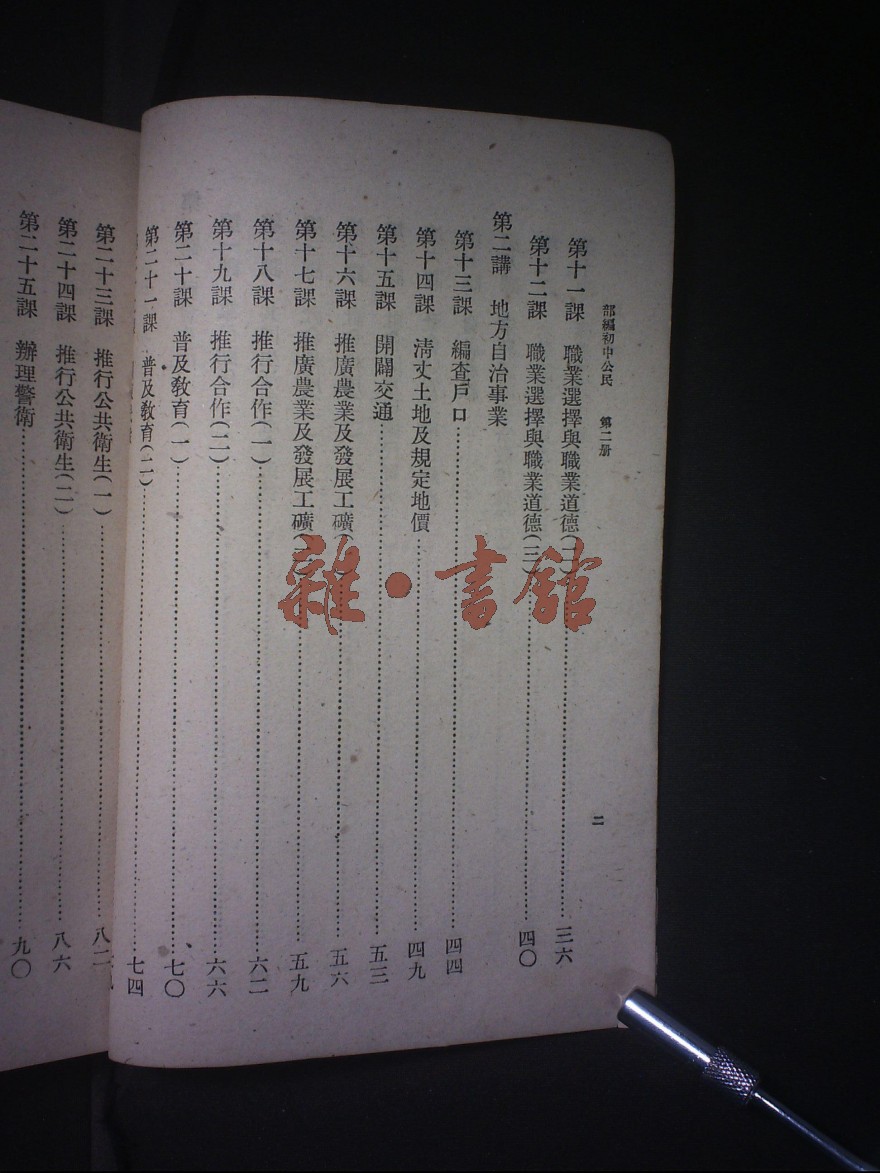 部編初中公民　第二册
二
第十一課　職業選擇與職業道德………三六
第十二課　職業選擇與職業道德(三)………四〇
第二講　地方自治事業
第十三課　編查戶口………四四
第十四課　清丈土地及規定地價………四九
第十五課　開闢交通………五三
第十六課　推廣農業及發展工礦………五六
第十七課　推廣農業及發展工礦………五九
第十八課　推行合作(一)………六二
第十九課　推行合作(二)………六六
第二十課　普及教育(一)………七〇
第二十一課　普及教育(二)………七四
第二十三課　推行公共衛生(一)………八二
第二十四課　推行公共衛生(二)………八六
第二十五課　辦理警衛………九〇
雜·書館